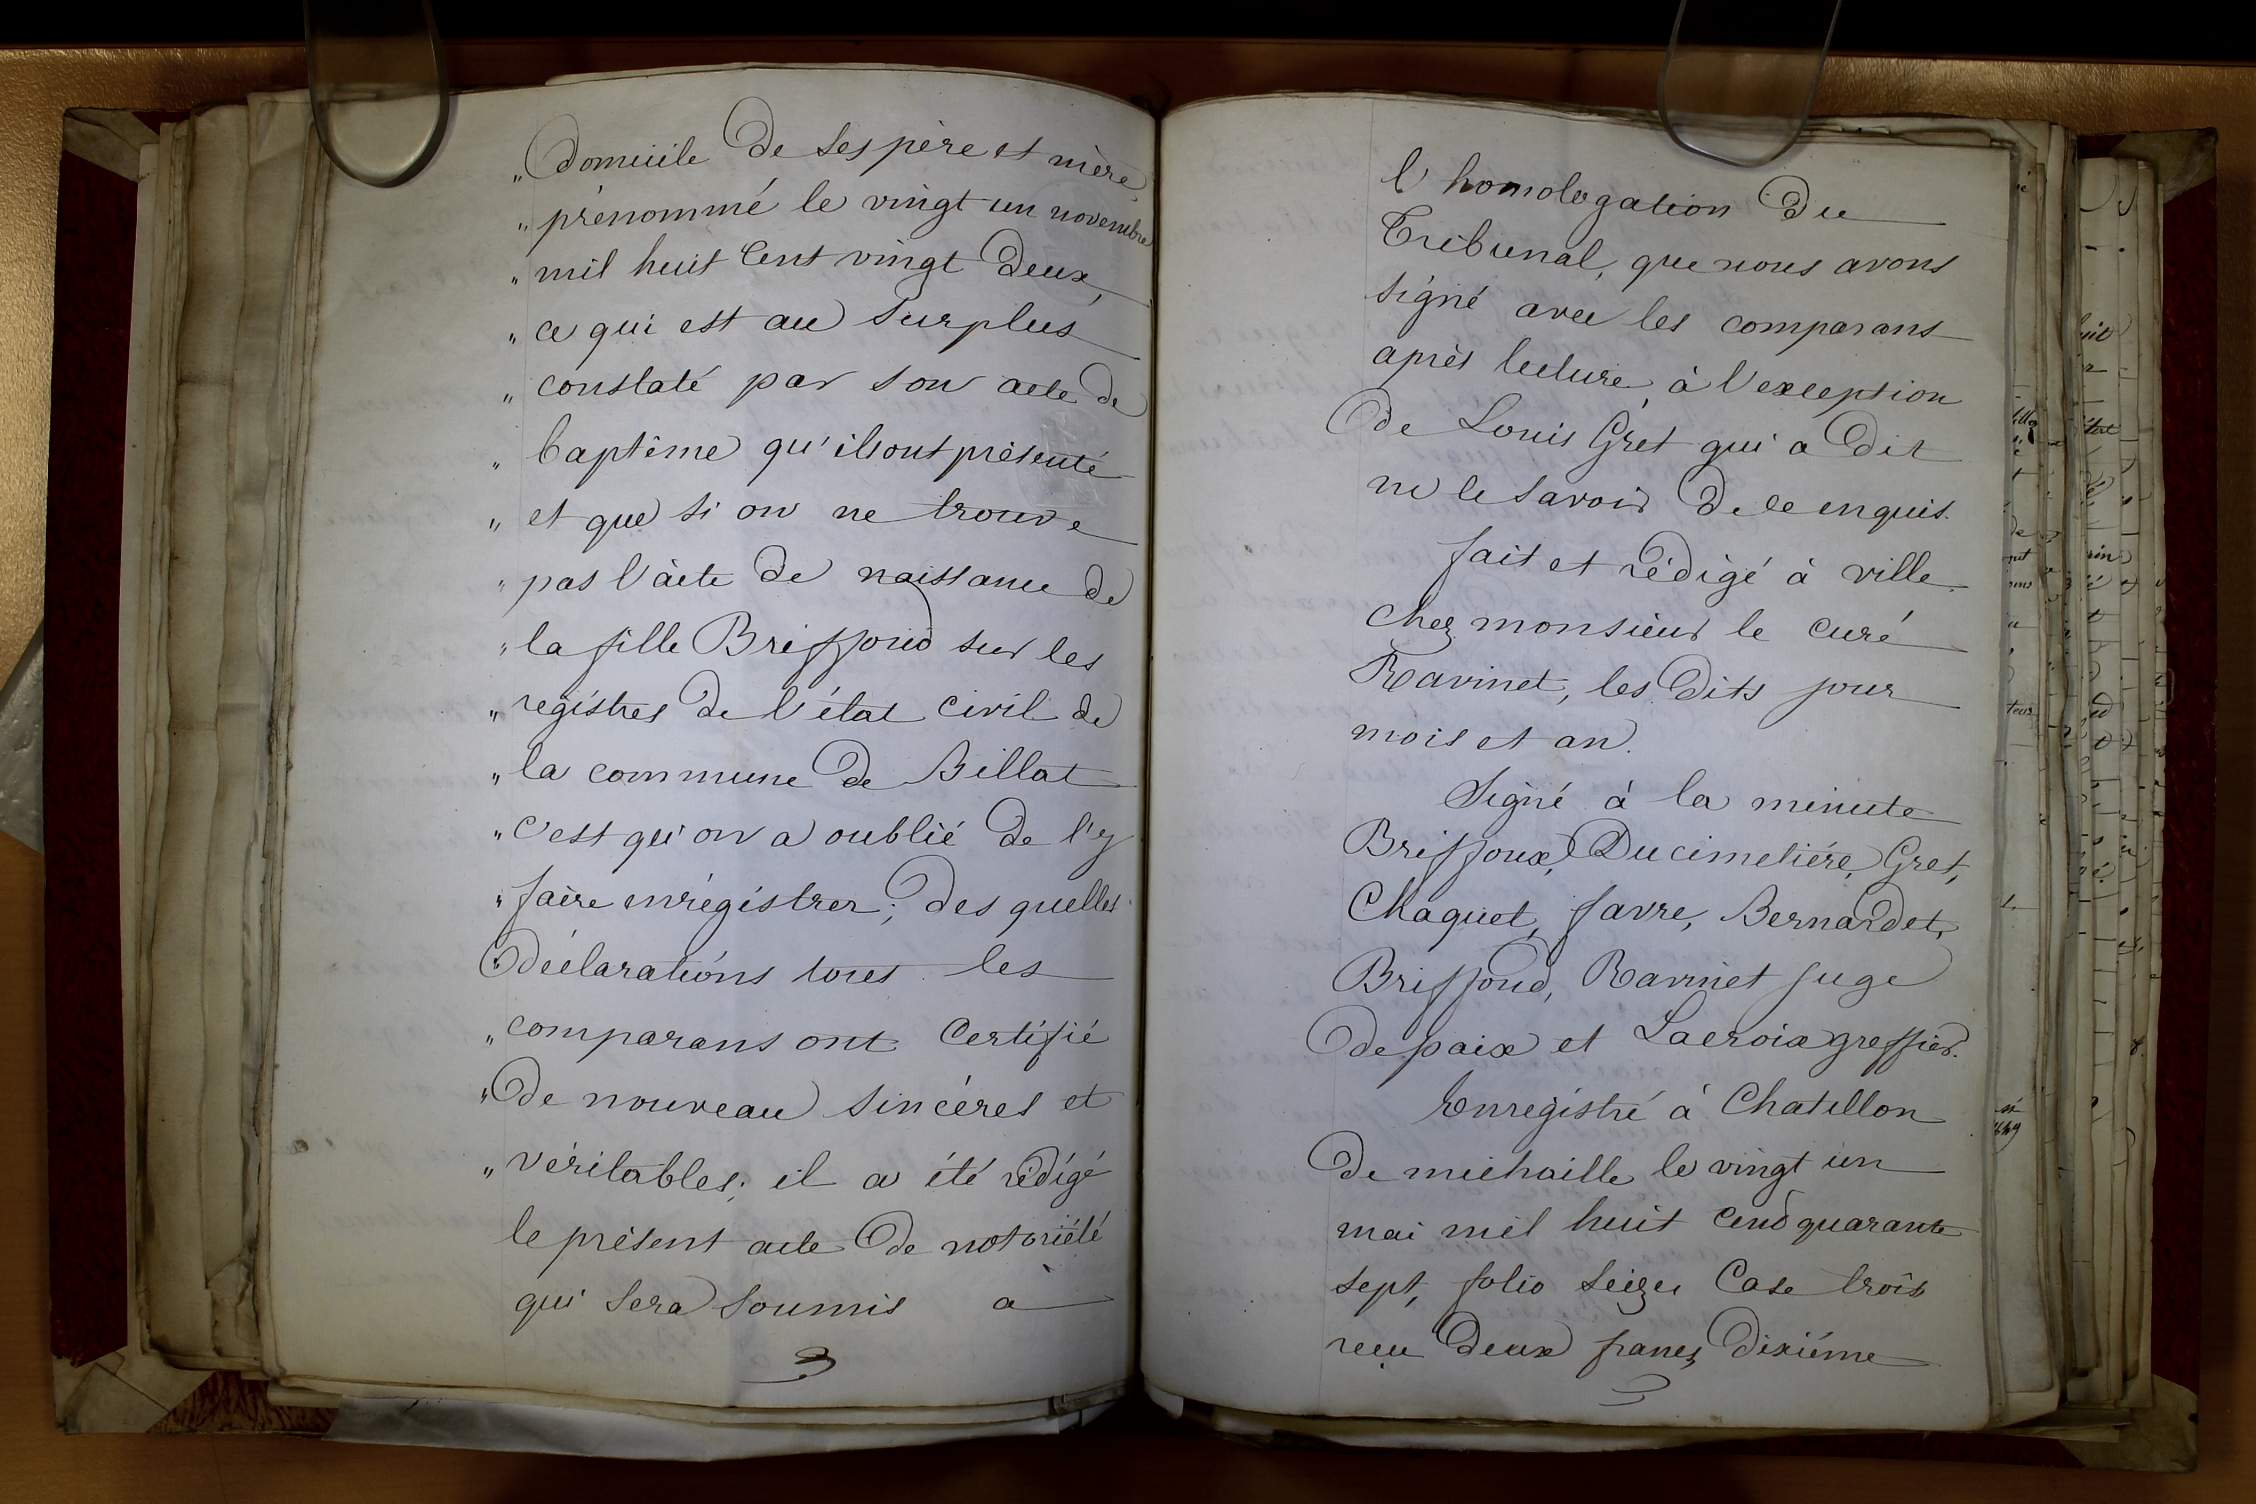 „ domicile de ses père et mère,
„ prénommé le vingt un novembre
„ mil huit cent vingt deux,
„ ce qui est au surplus
„ constaté par son acte de
„ baptême qu'ils ont présenté
„ et que si on ne trouve
„ pas l'acte de naissance de
„ la fille Briffoud sur les
„ registres de l'état civil de
„ la commune de Billat
„ c'est qu'on a oublié de l'y
„ faire enrégistrer; des quelles
„ déclarations tous les
„ comparans ont certifié
„ de nouveau sincéres et
„ véritables; il a été rédigé
le présent acte de notoriété
qui sera soumis à
l'homologation du
Tribunal, que nous avons
signé avec les comparans
après lecture, à l'exception
de Louis Gret qui a dit
ne le savoir de ce enquis.
fait et rédigé à ville
chez monsieur le curé
Ravinet, les dits jour
mois et an.
Signé à la minute
Briffoux, Ducimetiére, Gret,
Chaquet, favre, Bernardet,
Briffoud, Ravinet juge
de paix et Lacroix greffier.
Enregistré à Chatillon
de michaille le vingt un
mai mil huit cent quarante
sept, folio seize, Case trois
reçu deux francs, dixiéme